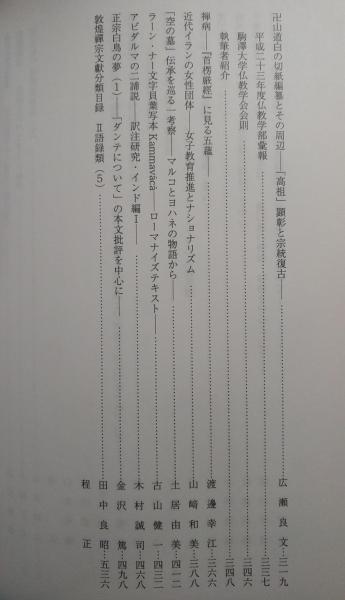 卍山道白の切紙編纂とその周辺――「高祖」顕彰と宗統復古――……広瀬良文…三一九
平成二十三年度仏教学部彙報……三三七
駒澤大学仏教学会会則……三四六
執筆者紹介……三四八
禅病――『首楞厳経』に見る五蘊――……渡邊幸江…三六六
近代イランの女性団体――女子教育推進とナショナリズム……山﨑和美…三八八
「空の墓」伝承を巡る一考察――マルコとヨハネの物語から――……土居由美…四一二
ラーン・ナー文字貝葉写本Kammavācā――ローマナイズテキスト――……古山健一…四三二
アビダルマの二諦説――訳注研究・インド編Ⅰ――……木村誠司…四六八
正宗白鳥の夢(1)――「ダンテについて」の本文批評を中心に――……金沢篤…四九八
敦煌禪宗文獻分類目録 Ⅱ語録類(5)……田中良昭…五三六
程正